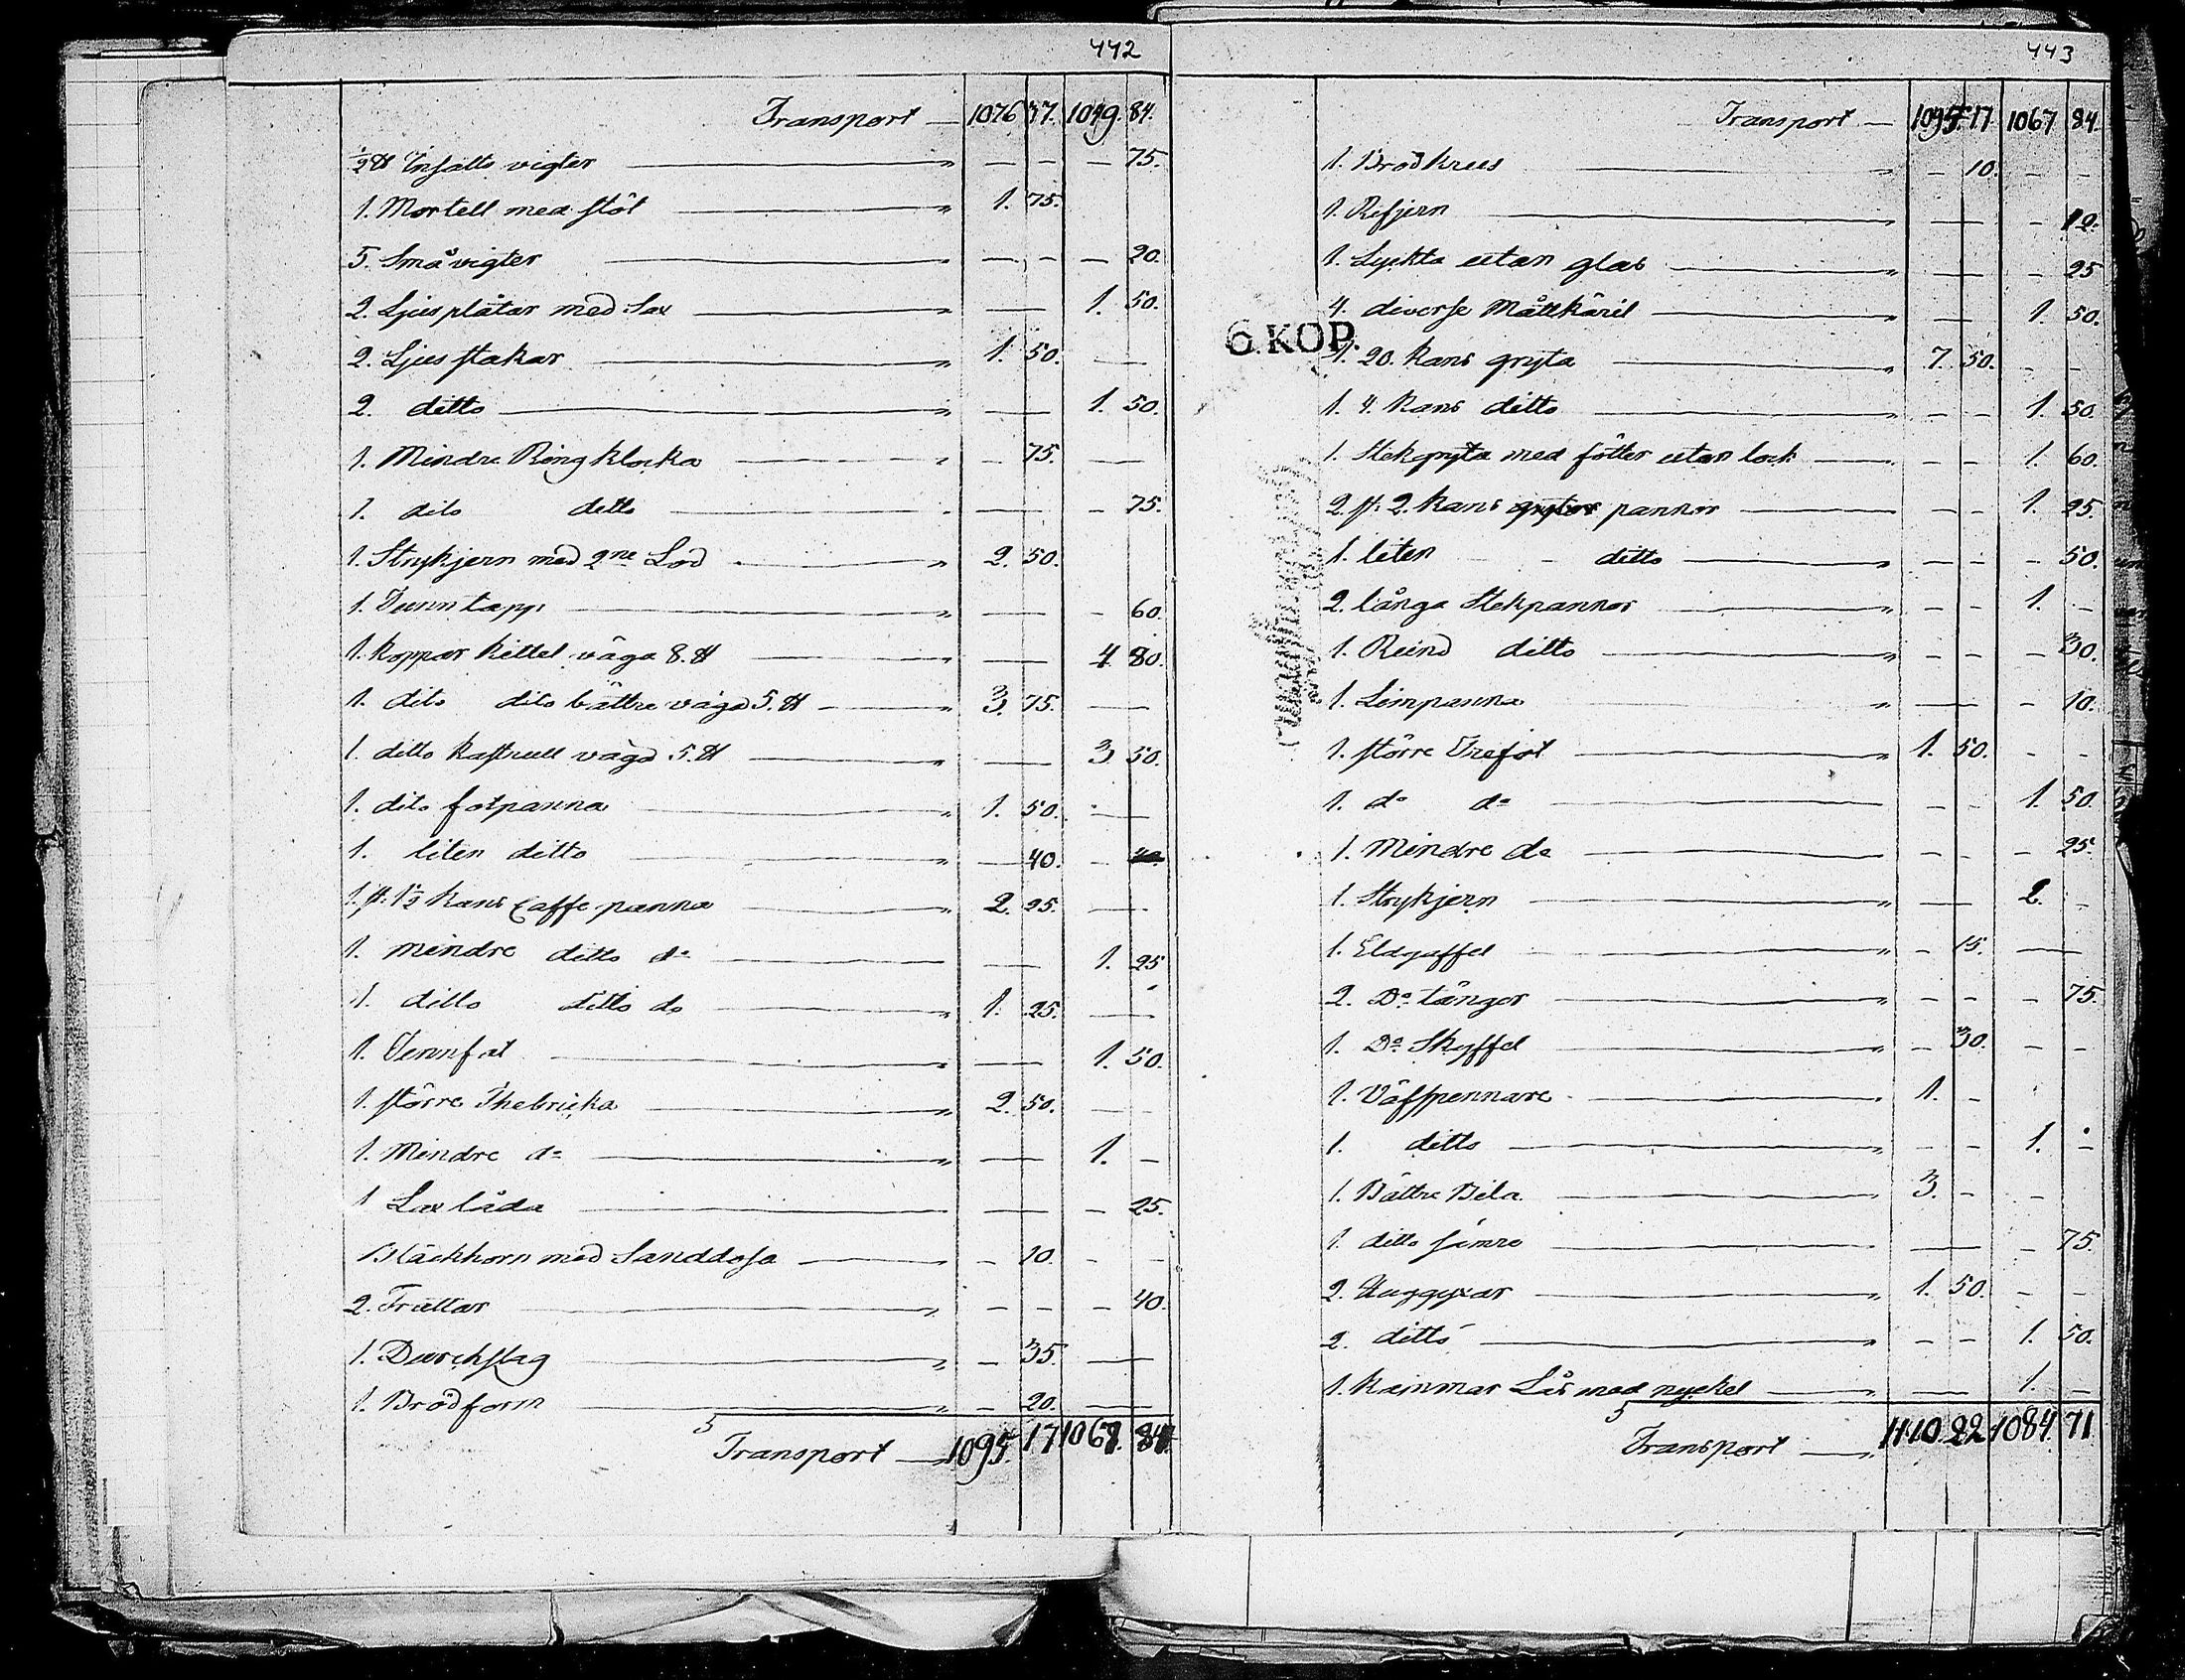 442
Transport — 1076 37. 1049. 84.
½ ℔ Insatts vigter — — — 75.
1. Mortell med stöt — 1. 75.
5. Små vigter — — — 20.
2. Ljusplåtar med Sax — — 1. 50.
2. Ljusstakar — 1. 50. —
2. ditto — — 1. 50.
1. Mindre Ringklocka — — 75. —
1. dito ditto — — — 75.
1. Strykjern med 2ne Lod — 2. 50.
1. Tunntapp — — — 60.
1. Koppar kittel väga 8. ℔ — — 4 80.
1. dito dito bättre vägd 5. ℔ — 3. 75. —
1. ditto Kastrull vägd 5. ℔ — — 3 50.
1. dito fotpanna — 1. 50. —
1. liten ditto — — 40. — 40.
1. st. 1½ Kans Caffe panna — 2. 25. —
1. mindre ditto do — — 1. 25
1. ditto ditto do — 1. 25. —
1. Tennfat — — 1. 50.
1. större Thebricka — 2. 50. —
1. Mindre do — — 1. —
1 Lax låda — — — 25.
Bläckhorn med Sanddosa — — 10. - -
2. Trattar — - - — 40.
1. Durchslag — — 35. —
1. Brödform — — 20. —
Transport — 1095. 17 1067. 84.
443
Transport — 1095. 17 1067 84.
1. Brödkrus — — 10. - -
1. Rifjern — — — 12.
1. Lyckta utan glas — — — 25
4. diverse Måttkäril — — 1. 50.
6. KOP.
1. 20. Kans gryta — 7. 50. - -
1. 4. Kans ditto — - - 1. 50.
1. Stekgryta med fötter utan lock — - - 1. 60.
2. st. 2. Kans grytor pannor — - - 1. 25.
1. liten ditto — - - - 50.
2. långa Stekpannor — - - 1. -
1. Rund ditto — - - - 30.
1. Limpanna — — - 10.
1. större Trefot — 1. 50. - -
1. do do — - - 1. 50.
1. Mindre do — - - - 25.
1. Strykjern — — 2. -
1. Eldgaffel — - 15. —
2. Do tänger — - - - 75.
1. Do Skyffel — - 30. - -
1. Väfspennare — 1. -
1. ditto — - - 1. -
1. Bättre Bila — 3. - -
1. ditto sämre — — - 75.
2. Huggyxor — 1. 50. - -
2. ditto — - - 1. 50.
1. Kammar Lås med nyckel — — 1. -
Transport — 1110. 22 1084. 71